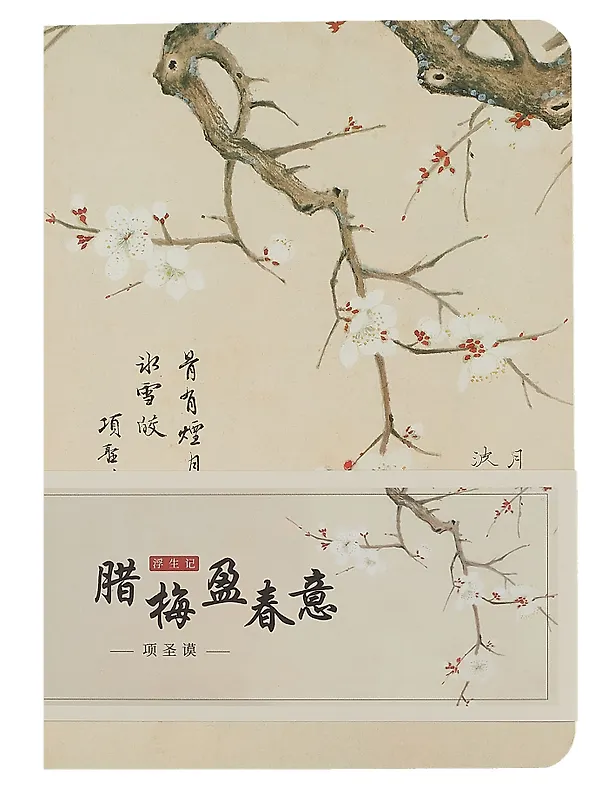 骨有煙月
冰雪皎
項聖
月
波
浮生记
腊梅盈春意
项圣谟